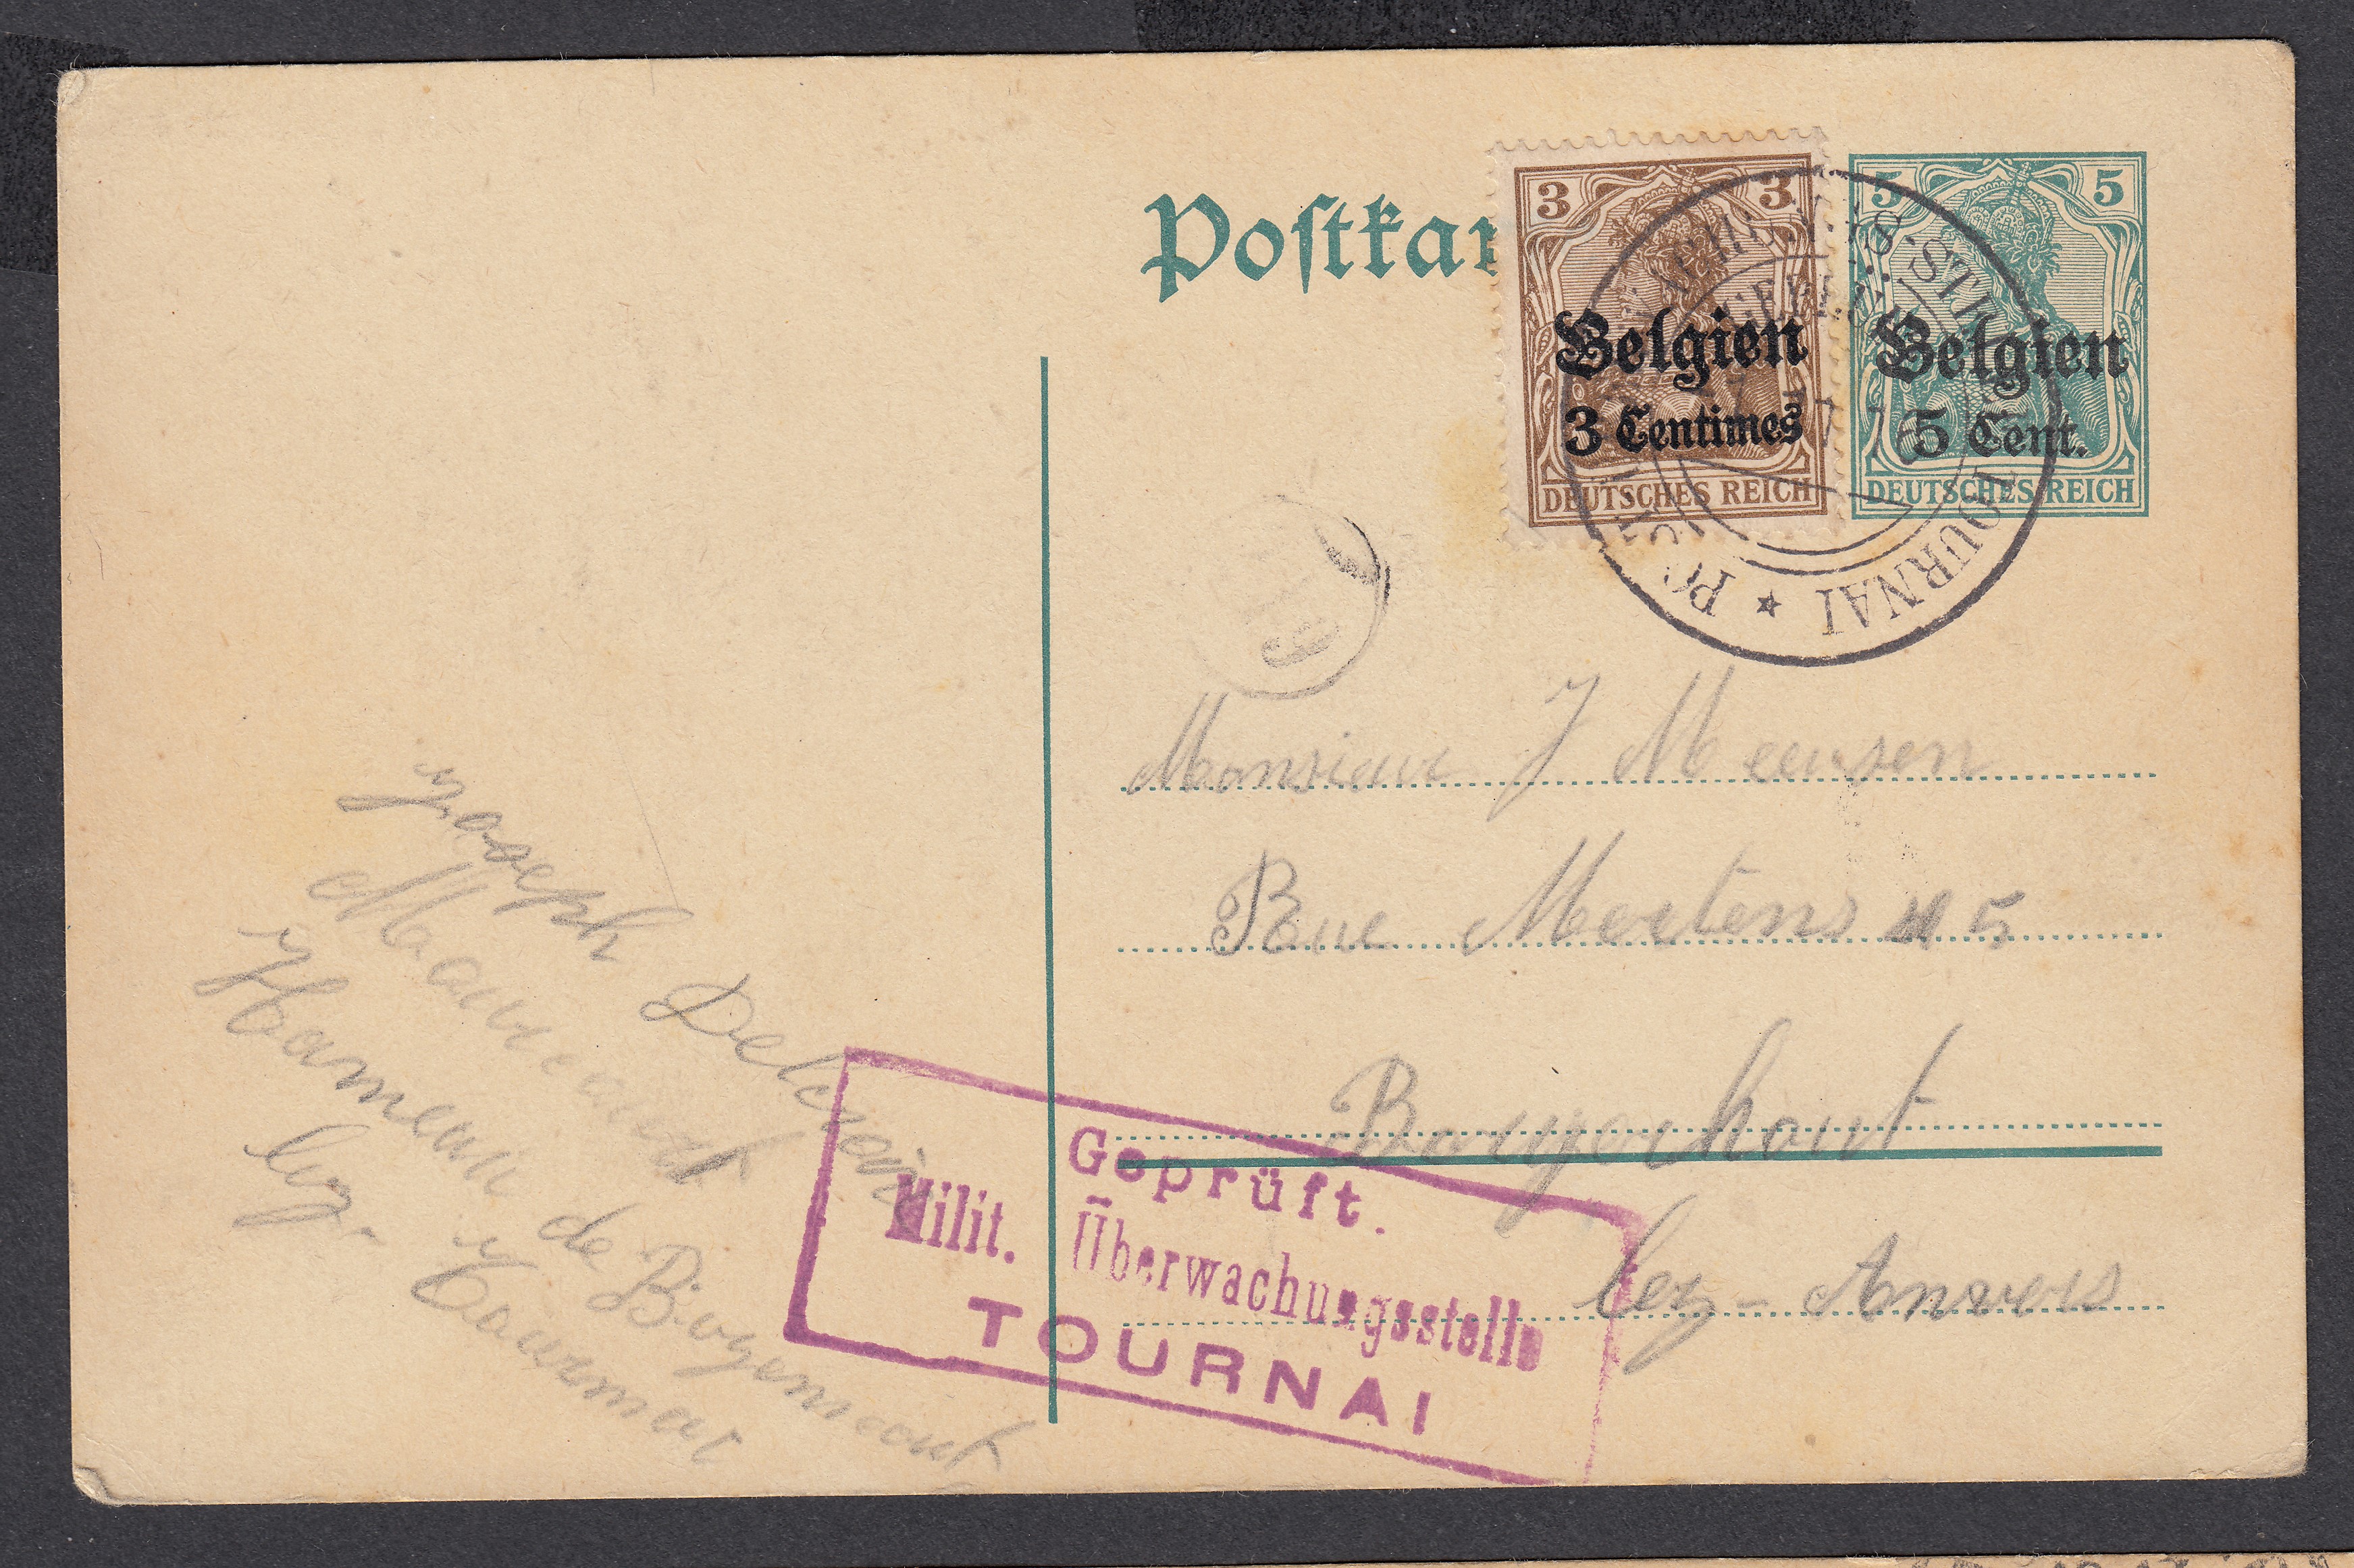 Postkar
3 3
Belgien
3 Centimes
DEUTSCHES REICH
5 5
Belgien
5 Cent.
DEUTSCHES REICH
TOURNAI ★
Monsieur J Meeusen
Rue Mertens 5
Borgerhout
lez-Anvers
Joseph Delcroix
Hameau de
lez-Tournai
Geprüft.
Milit. Überwachungsstelle
TOURNAI